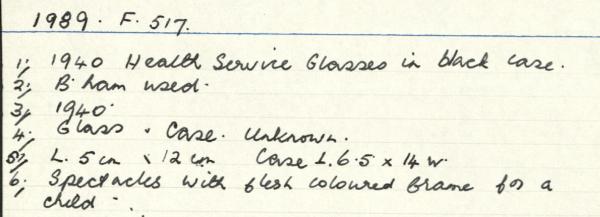 1989. F. 517.
1; 1940 Health Service Glasses in black case.
2; B'ham used.
3; 1940.
4; Glass. Case. Unknown.
5; L. 5 cm x 12 cm Case L. 6.5 x 14 w.
6; Spectacles with flesh coloured frame for a
child.